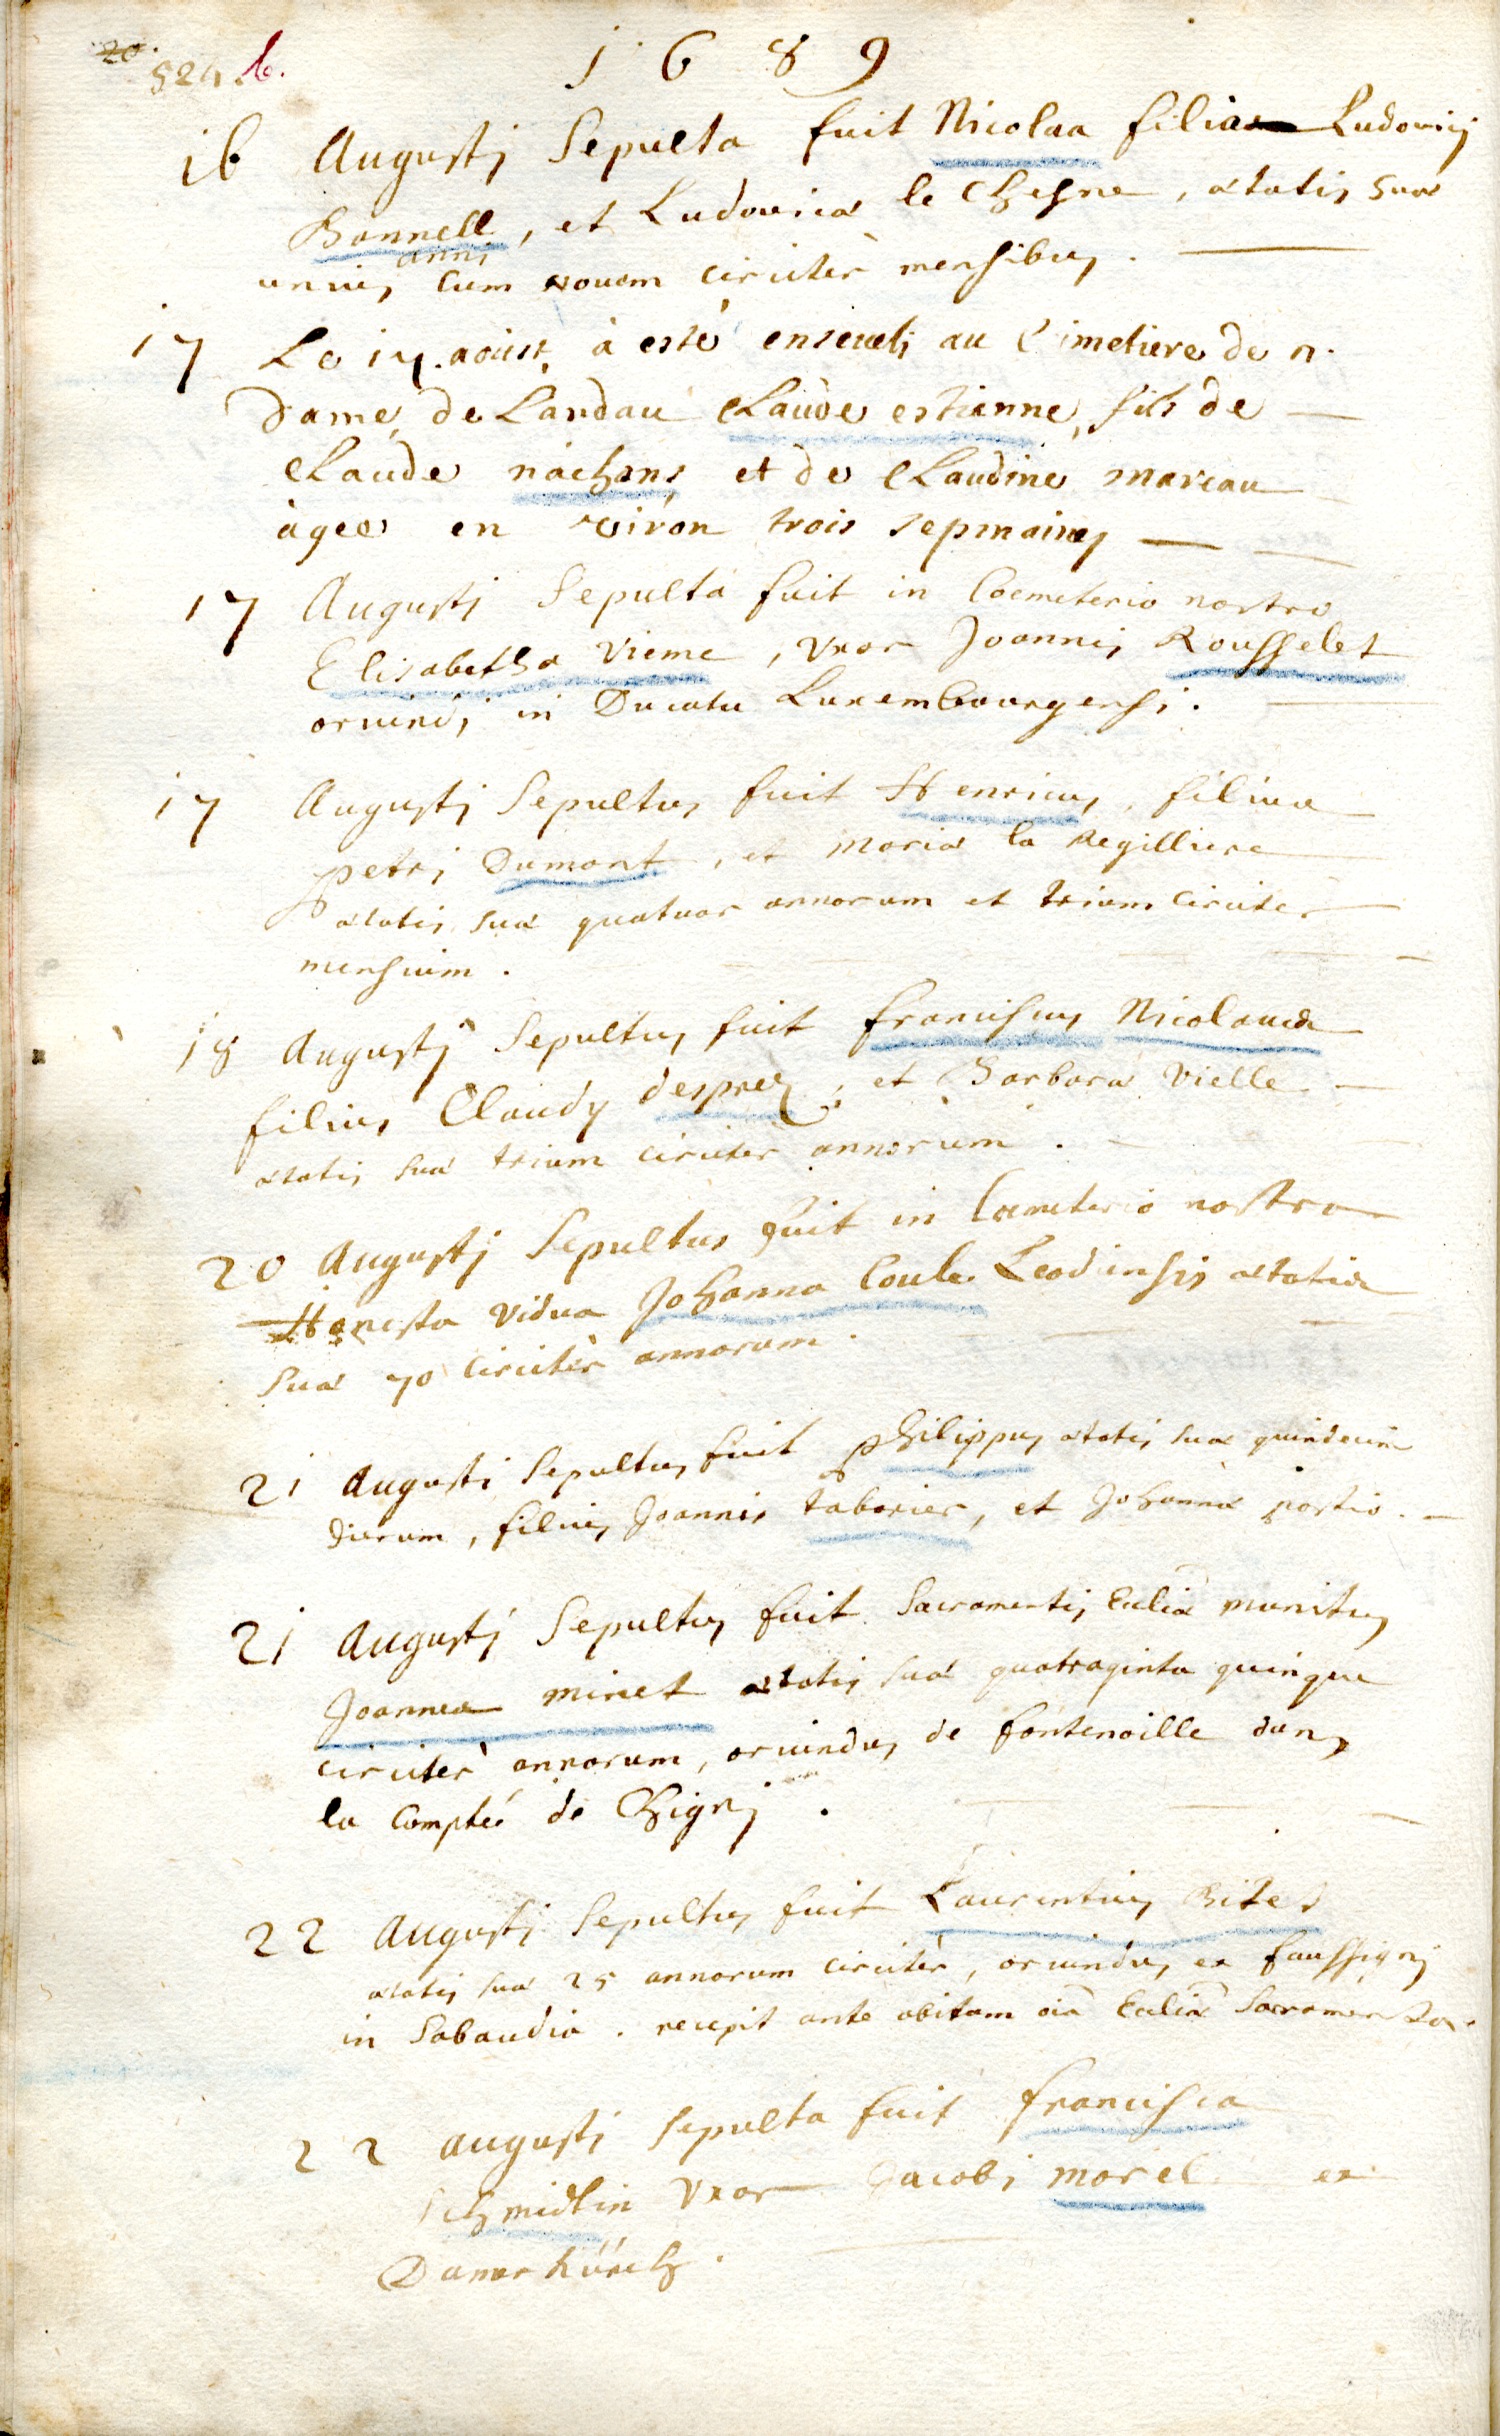 20.
524 b.
1689
16 Augustj Sepulta fuit Nicolaa filia Ludovicj
Bonnell, et Ludovicæ le Chesne, ætatis suæ
anni
unius cum novem circitèr mensibus.
17 Le 17. aoust à esté enseueli au Cimetiere de n.
Dame de Landau Claude estienne, fils de
Claude náchans et de Claudine mareau
àgee en viron trois sepmaines
17 Augustj Sepulta fuit in Coemeterio nostro
Elisabetha Vieme, Vxor Joannis Rousselet
oriundj in Ducatu Luxembourgensi.
17 Augustj Sepultus fuit Henricus, filius
petrj Dumont, et Mariæ la Regilliere
ætatis suæ quatuor annorum et trium circiter
mensium.
18 Augustj Sepultus fuit franciscus Nicolaus
filius Claudy desprez, et Barbaræ Vielle
ætatis suæ trium circiter annorum.
20 Augustj Sepultus fuit in Cæmeterio nostro
Honesta Vidua Johanna Coule Leodiensis ætatis
Suæ 70 circitèr annorum.
21 Augusti Sepultus fuit philippus ætatis suæ quindecim
dierum, filius Joannis taborier, et Johannæ portio.
21 Augustj Sepultus fuit Sacramentis Ecliæ munitus
Joannes minet ætatis suæ quatraginta quinque
circitèr annorum, oriundus de fontenoille dans
la Comptée de Chignj.
22 Augustj Sepultus fuit Laurentius Bites
ætatis suæ 25 annorum circitèr, oriundus ex faussignj
in Sabaudia. recepit ante obitum oia Ecliæ Sacramenta.
22 augustj sepulta fuit francisca
Schmidtin Vxor Jacobj morel ex
Damerkürch.